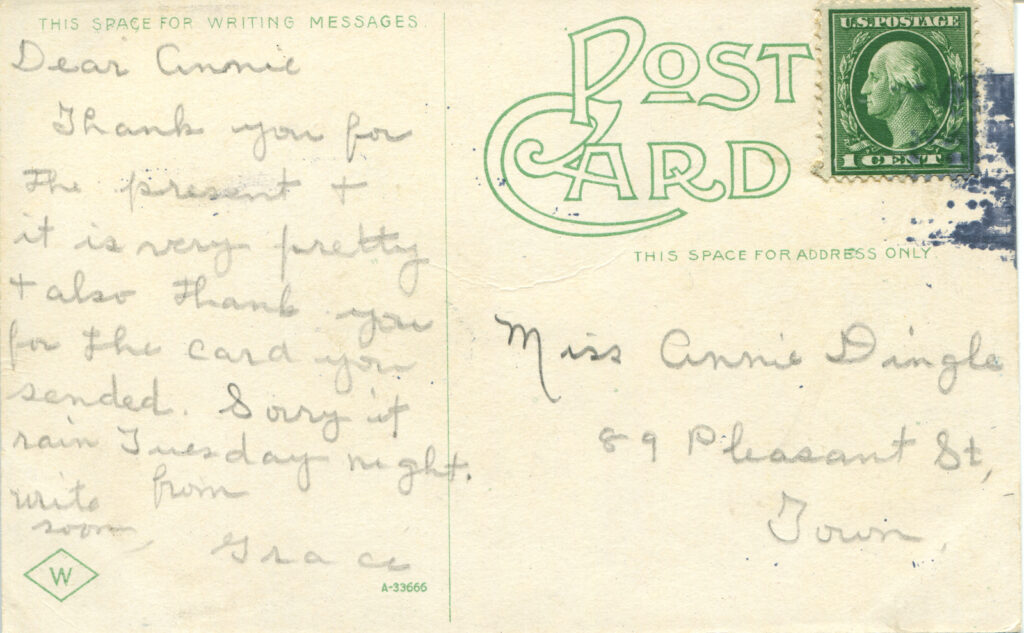 THIS SPACE FOR WRITING MESSAGES.
Dear Annie
Thank you for
the present +
it is very pretty
+ also thank you
for the card you
sended. Sorry it
rain Tuesday night.
write from
soon,
Grace
W
A-33666
POST
CARD
U.S. POSTAGE
1 CENT
THIS SPACE FOR ADDRESS ONLY.
Miss Annie Dingle
89 Pleasant St,
Town,